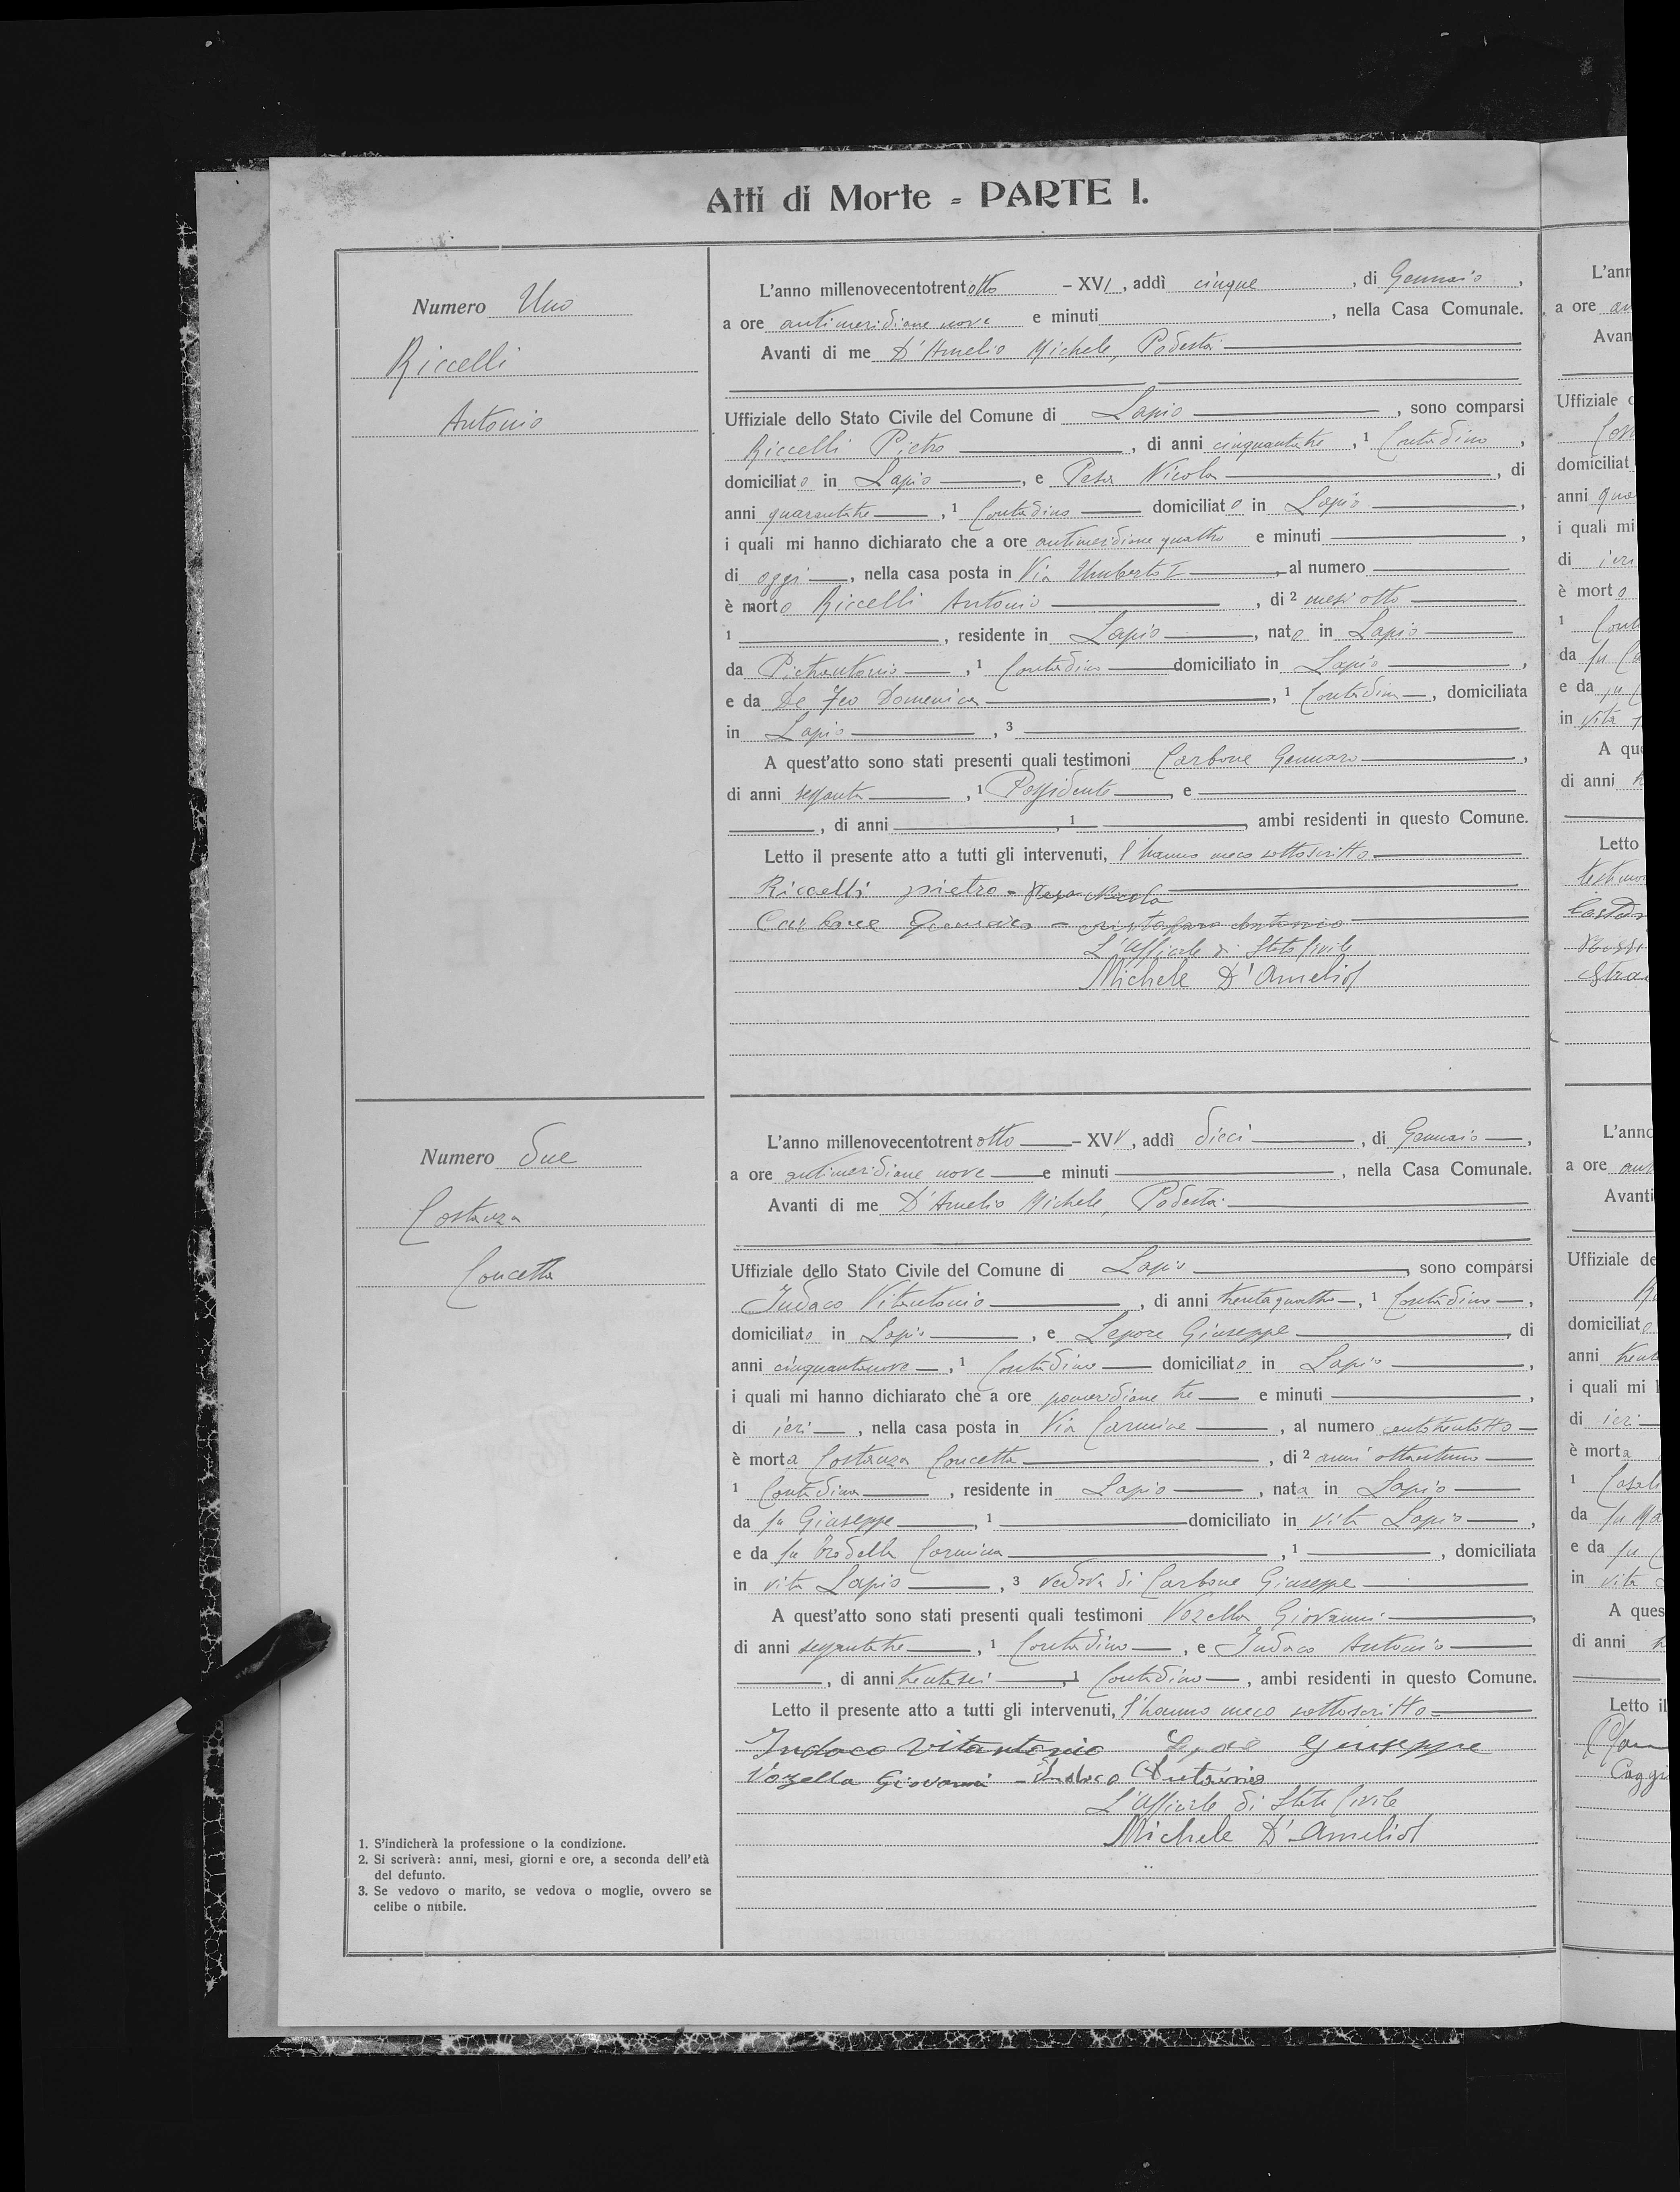 Atti di Morte = PARTE I.
Numero Uno
Riccelli
Antonio
L'anno millenovecentotrentotto – XVI, addì cinque, di Gennaio,
a ore antimeridiane nove e minuti , nella Casa Comunale.
Avanti di me D'Amelio Michele, Podestà
Uffiziale dello Stato Civile del Comune di Lapio, sono comparsi
Riccelli Pietro, di anni cinquantatre, 1 Contadino,
domiciliato in Lapio, e Pesa Nicola, di
anni quarantatre, 1 Contadino domiciliato in Lapio,
i quali mi hanno dichiarato che a ore antimeridiane quattro e minuti ,
di oggi, nella casa posta in Via Umberto I, al numero
è morto Riccelli Antonio, di 2 mesi otto
1 , residente in Lapio, nato in Lapio
da Pietrantonio, 1 Contadino domiciliato in Lapio,
e da De Feo Domenica, 1 Contadina, domiciliata
in Lapio, 3
A quest'atto sono stati presenti quali testimoni Carbone Gennaro,
di anni sessanta, 1 Possidente, e
, di anni , 1 , ambi residenti in questo Comune.
Letto il presente atto a tutti gli intervenuti, l'hanno meco sottoscritto
Riccelli pietro = Pesa Nicola
Carbone Gennaro – Antonio
L'Ufficiale di Stato Civile
Michele D'Amelio
Numero due
Costanza
Concetta
L'anno millenovecentotrentotto – XVV, addì dieci, di Gennaio,
a ore antimeridiane nove e minuti , nella Casa Comunale.
Avanti di me D'Amelio Michele, Podestà
Uffiziale dello Stato Civile del Comune di Lapio, sono comparsi
Indaco Vitantonio, di anni trentaquattro, 1 Contadino,
domiciliato in Lapio, e Lepore Giuseppe, di
anni cinquantanove, 1 Contadino domiciliato in Lapio,
i quali mi hanno dichiarato che a ore pomeridiane tre e minuti ,
di ieri, nella casa posta in Via Carmine, al numero centotrentotto
è morta Costanza Concetta, di 2 anni ottantuno
1 Contadina, residente in Lapio, nata in Lapio
da fu Giuseppe, 1 domiciliato in vita Lapio,
e da fu Carmina, 1 , domiciliata
in vita Lapio, 3 vedova di Carbone Giuseppe
A quest'atto sono stati presenti quali testimoni Vozella Giovanni,
di anni sessantatre, 1 Contadino, e Indaco Antonio
, di anni trentasei, 1 Contadino, ambi residenti in questo Comune.
Letto il presente atto a tutti gli intervenuti, l'hanno meco sottoscritto=
Indaco Vitantonio Giuseppe
Vozella Giovanni – Indaco Antonio
L'Ufficiale di Stato Civile
Michele D'Amelio
1. S'indicherà la professione o la condizione.
2. Si scriverà: anni, mesi, giorni e ore, a seconda dell'età
del defunto.
3. Se vedovo o marito, se vedova o moglie, ovvero se
celibe o nubile.